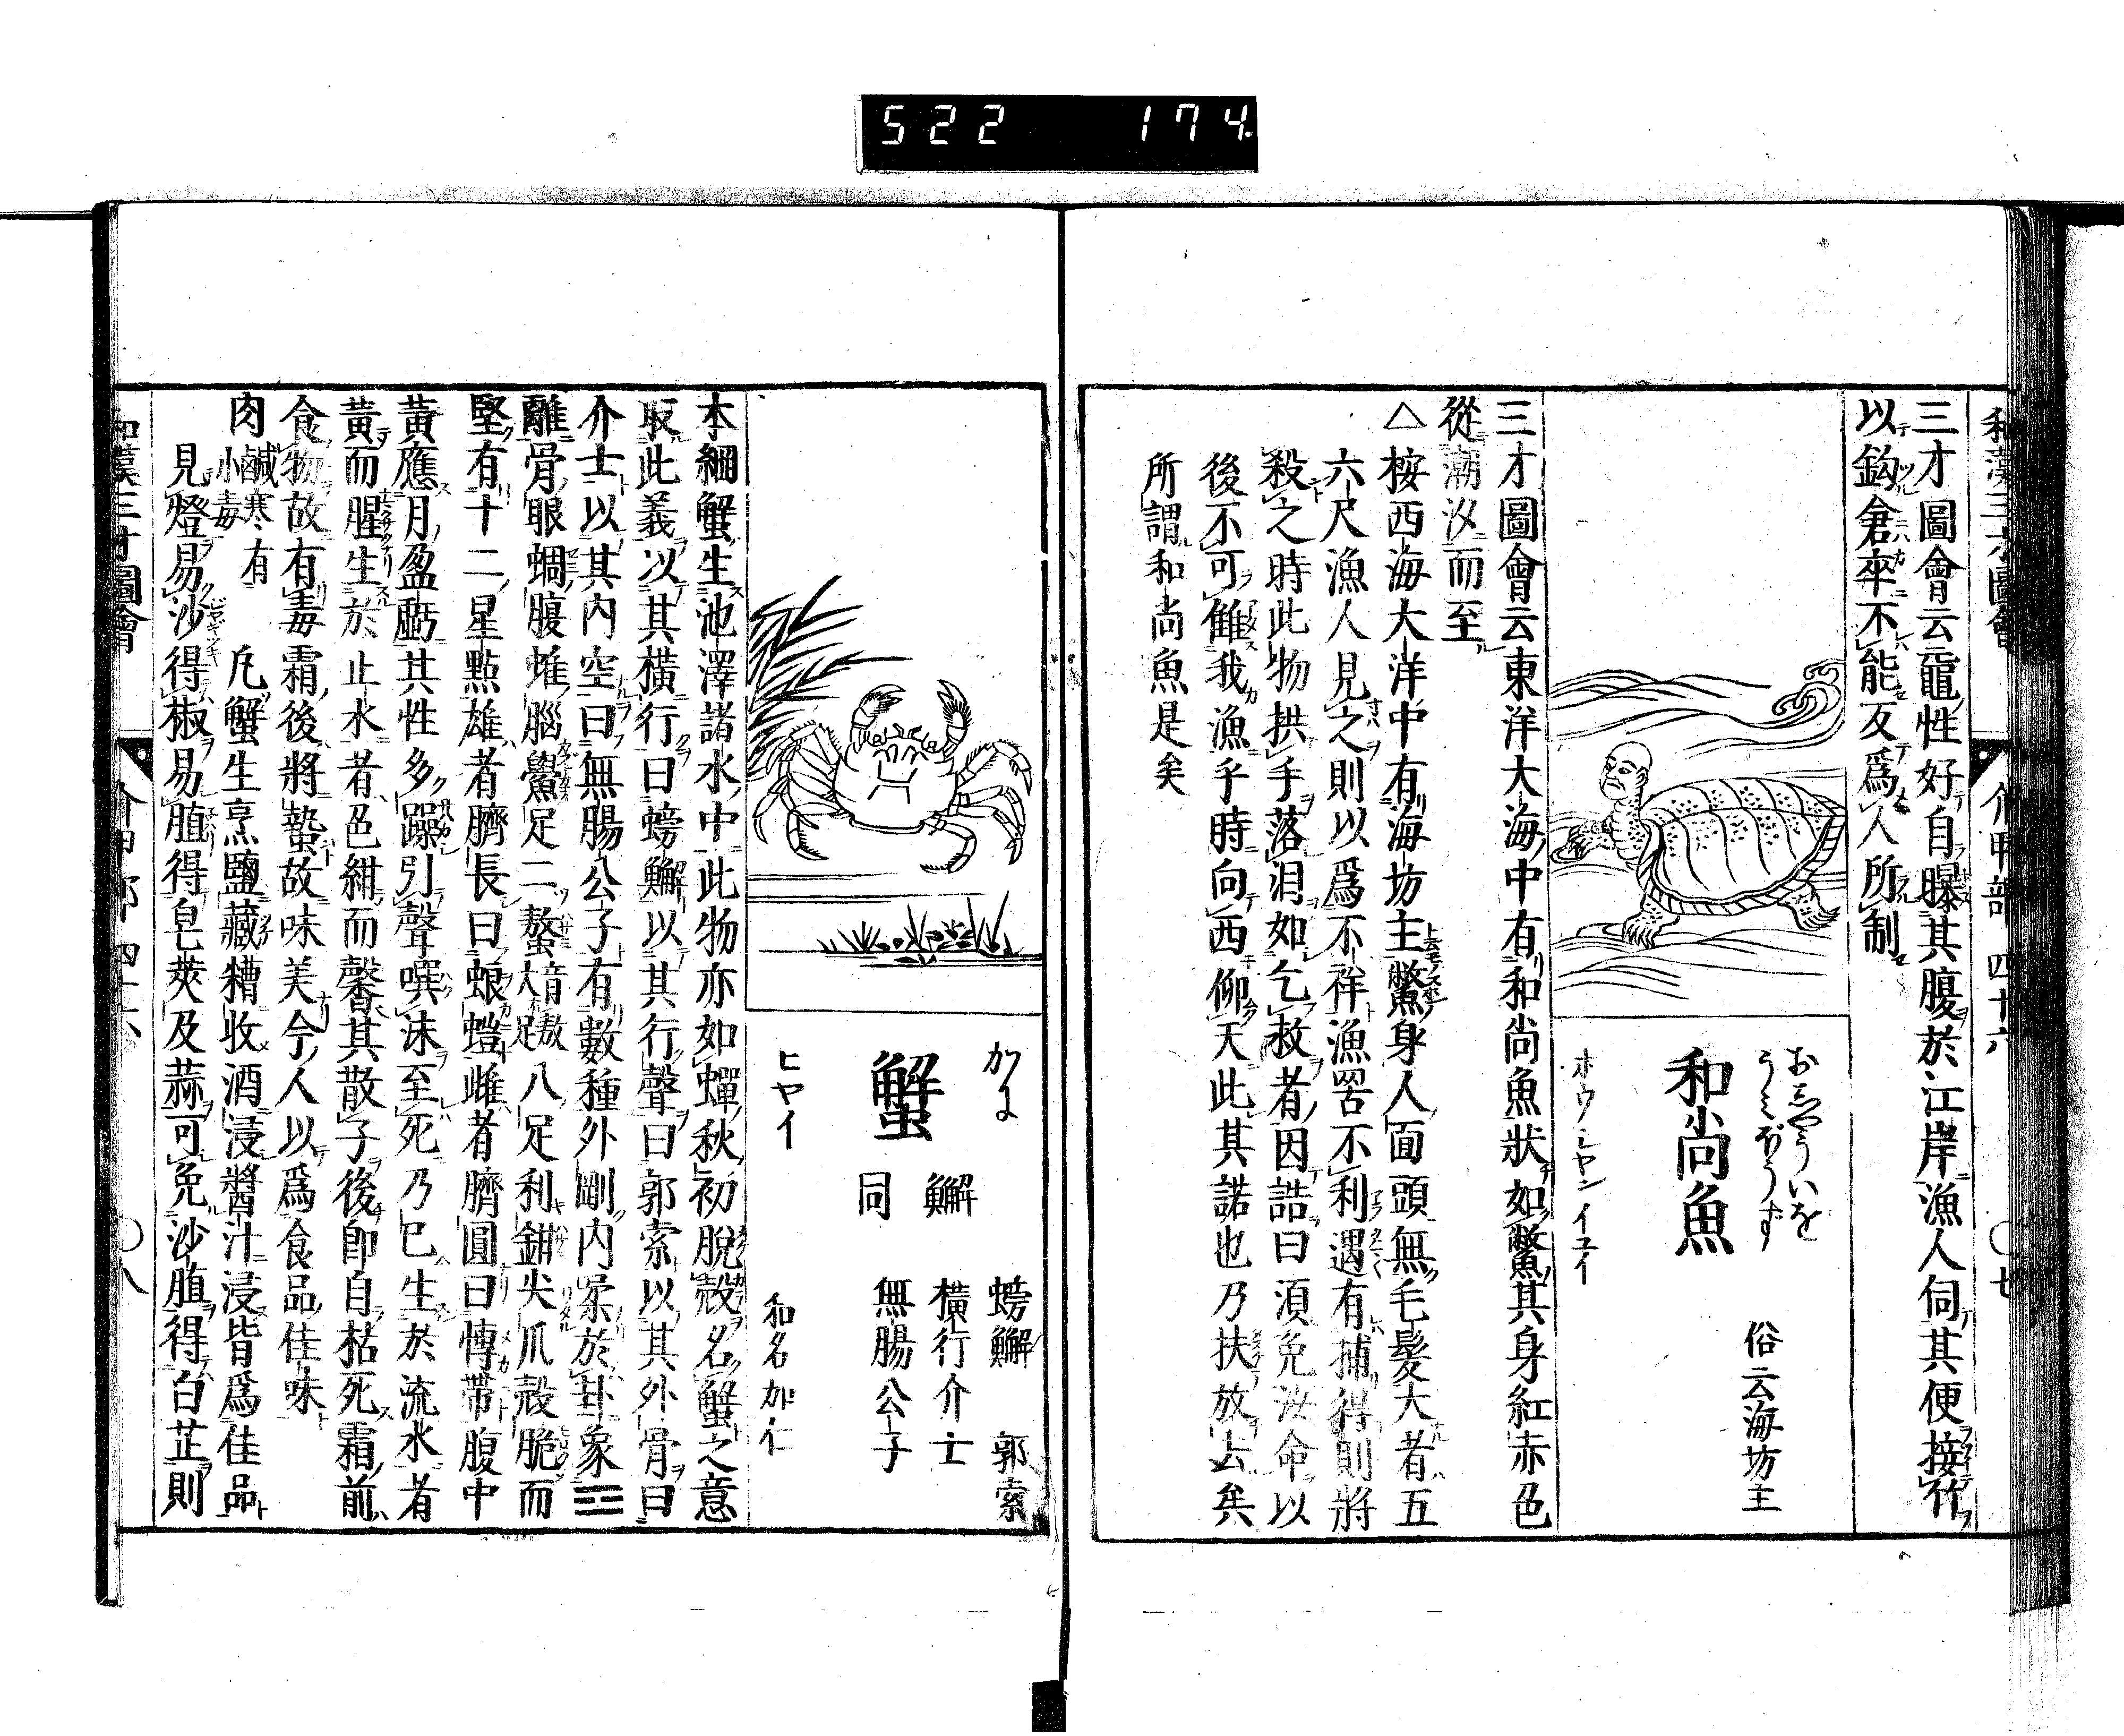 522 174
和漢三才圖會 介甲部 四十六 〇七
三才圖會云鼉性好自曝其腹於江岸漁人伺其便接竹
以鈎倉卒不能反爲人所制
おしやういを
うみばうず
和尚魚
俗云海坊主
ホウシヤンイユイ
三才圖會云東洋大海中有和尚魚狀如鱉其身紅赤色
從潮汐而至
△按西海大洋中有海坊主鱉身人面頭無毛髮大者五
六尺漁人見之則以爲不祥漁罟不利遇有捕得則將
殺之時此物拱手落泪如乞救者因誥曰須免汝命以
後不可讎我漁乎時向西仰天此其諾也乃扶放去矣
所謂和尚魚是矣
かに
蟹
ヒヤイ
䲒同
螃䲒 郭索
橫行介士
無腸公子
和名加仁
本綱蟹生池澤諸水中此物亦如蟬秋初脫殼名蟹之意
取此義以其橫行曰螃䲒以其行聲曰郭索以其外骨曰
介士以其内空曰無腸公子有數種外剛内柔於卦象☲
離骨眼蜩腹䖦腦鱟足二螯八足利鉗尖爪殼脆而
堅有十二星點雄者臍長曰蜋螘雌者臍圓曰博帶腹中
黃應月盈虧其性多躁引聲噀沫至死乃已生於流水者
黃而腥生於止水者色紺而馨其散子後即自枯死霜前
食物故有毒霜後將蟄故味美今人以爲食品佳味
肉鹹寒有小毒 凡蟹生烹鹽藏糟收酒浸醬汁浸皆爲佳品
見燈易沙得椒易䐈得皂莢及蒜可免沙䐈得白芷則
和漢三才圖會 介甲部 四十六 〇八